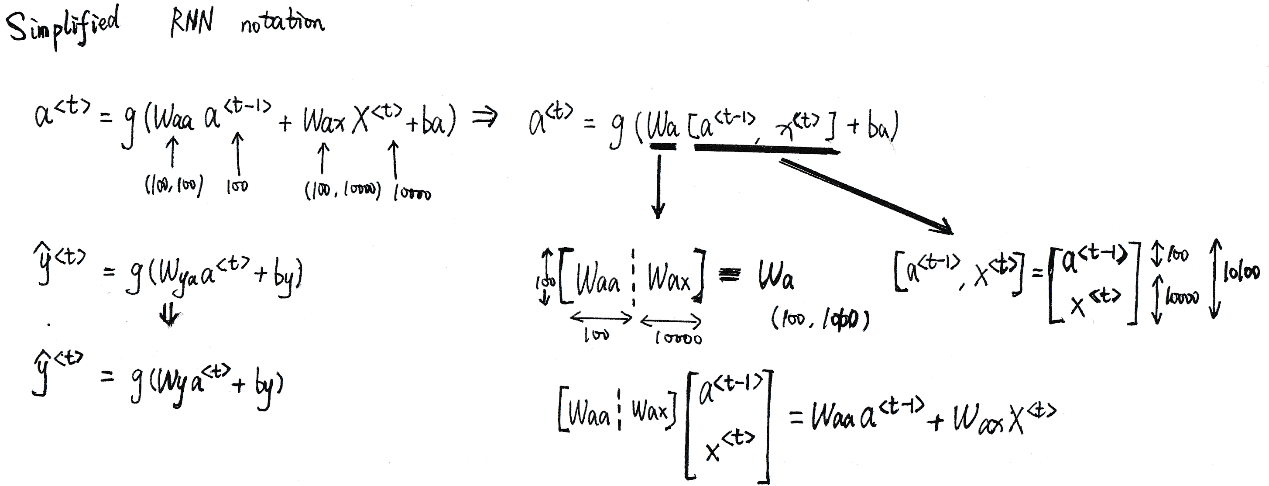 Simplified RNN notation
a<t> = g(Waa a<t-1> + Wax X<t> + ba) ⇒ a<t> = g(Wa [a<t-1>, x<t>] + ba)
(100,100) 100 (100,10000) 10000
ŷ<t> = g(Wya a<t> + by)
⇓
ŷ<t> = g(Wy a<t> + by)
100 [Waa ¦ Wax] = Wa
100 10000 (100, )
[a<t-1>, x<t>] = [a<t-1> x<t>] 100 10000 10100
[Waa ¦ Wax] [a<t-1> x<t>] = Waa a<t-1> + Wax X<t>